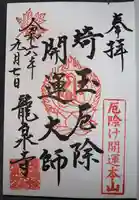 奉拝
埼玉厄除
開運大師
龍泉寺
令和六年
九月七日
厄除け開運本山